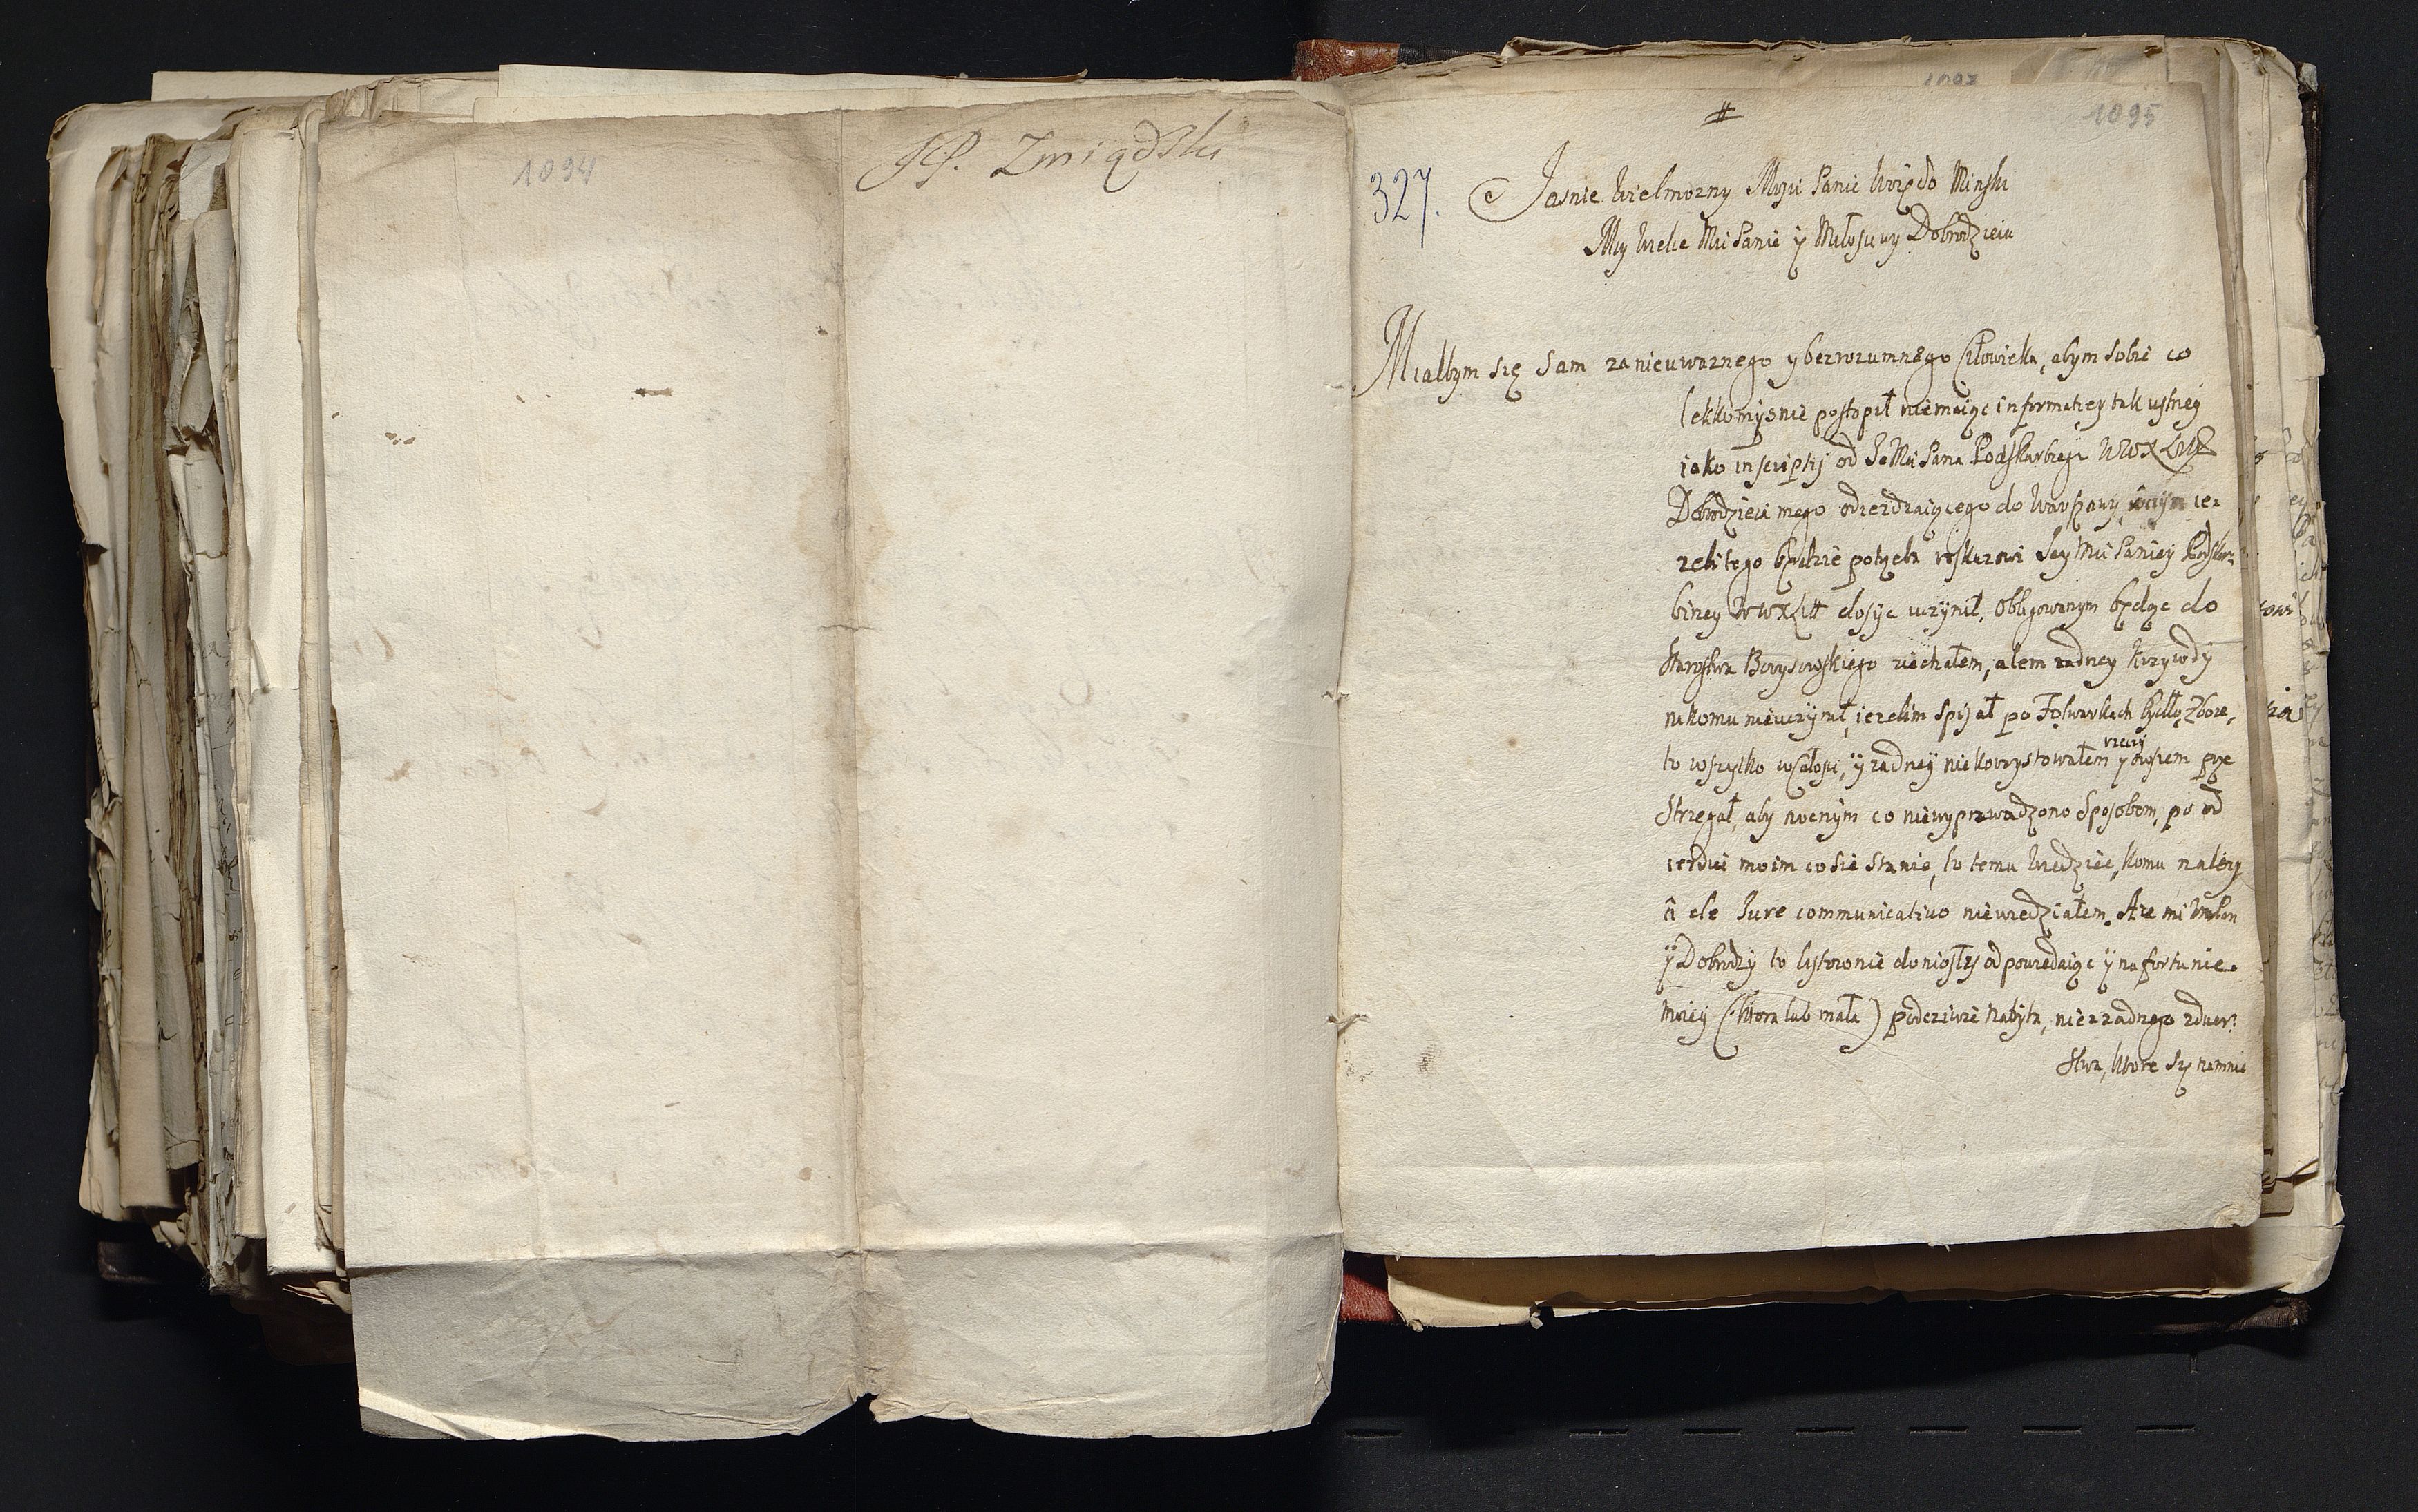 1094
JP. Zmiądzki
1095
#
327.
Jasnie Wielmozny Mosci Panie Woiewodo Minski
Moy Wielce Mci Panie y Miłosciwy Dobrodzieiu
Miałbym się Sam za nieuwaznego y bezrozumnego Człowieka, abym Sobie co
lekkomysnie postopił niemaiąc informatiey tak ustney
iako inscriptis od JeMci Pana Podskarbiego WWXLitt
Dobrodzieia mego odiezdzaiącego do Warszawy, ie=
zeli tego będzie potrzeba roskazowi Jey Mci Paniey Podskar=
biney WWXLitt dosyc uczynił, Obligowanym będąc do
Starostwa Borysowskiego ziechałem, alem zadney Krzywdy
nikomu nieuczynił, iezelim Spisał po Folwarkach Bydło, Zboze,
to wszytko w Całosci, y zadney rzeczy nie korzystowałem y owszem prze
Strzegał, aby nocnym co niewyprowadzono Sposobem, po od
iezdzie moim co sie Stanie, to temu Wiedziec, Komu nalezy
a de Jure communicativo niewiedziałem. A ze mi WmPan
y Dobrodzy to listownie doniosłzs odpowiedaiąc y na fortunie
moiey (Ktora lub mała) podczciwie Nabyta, nie z zadnego zdzier=
Stwa, Ktore Są namnie